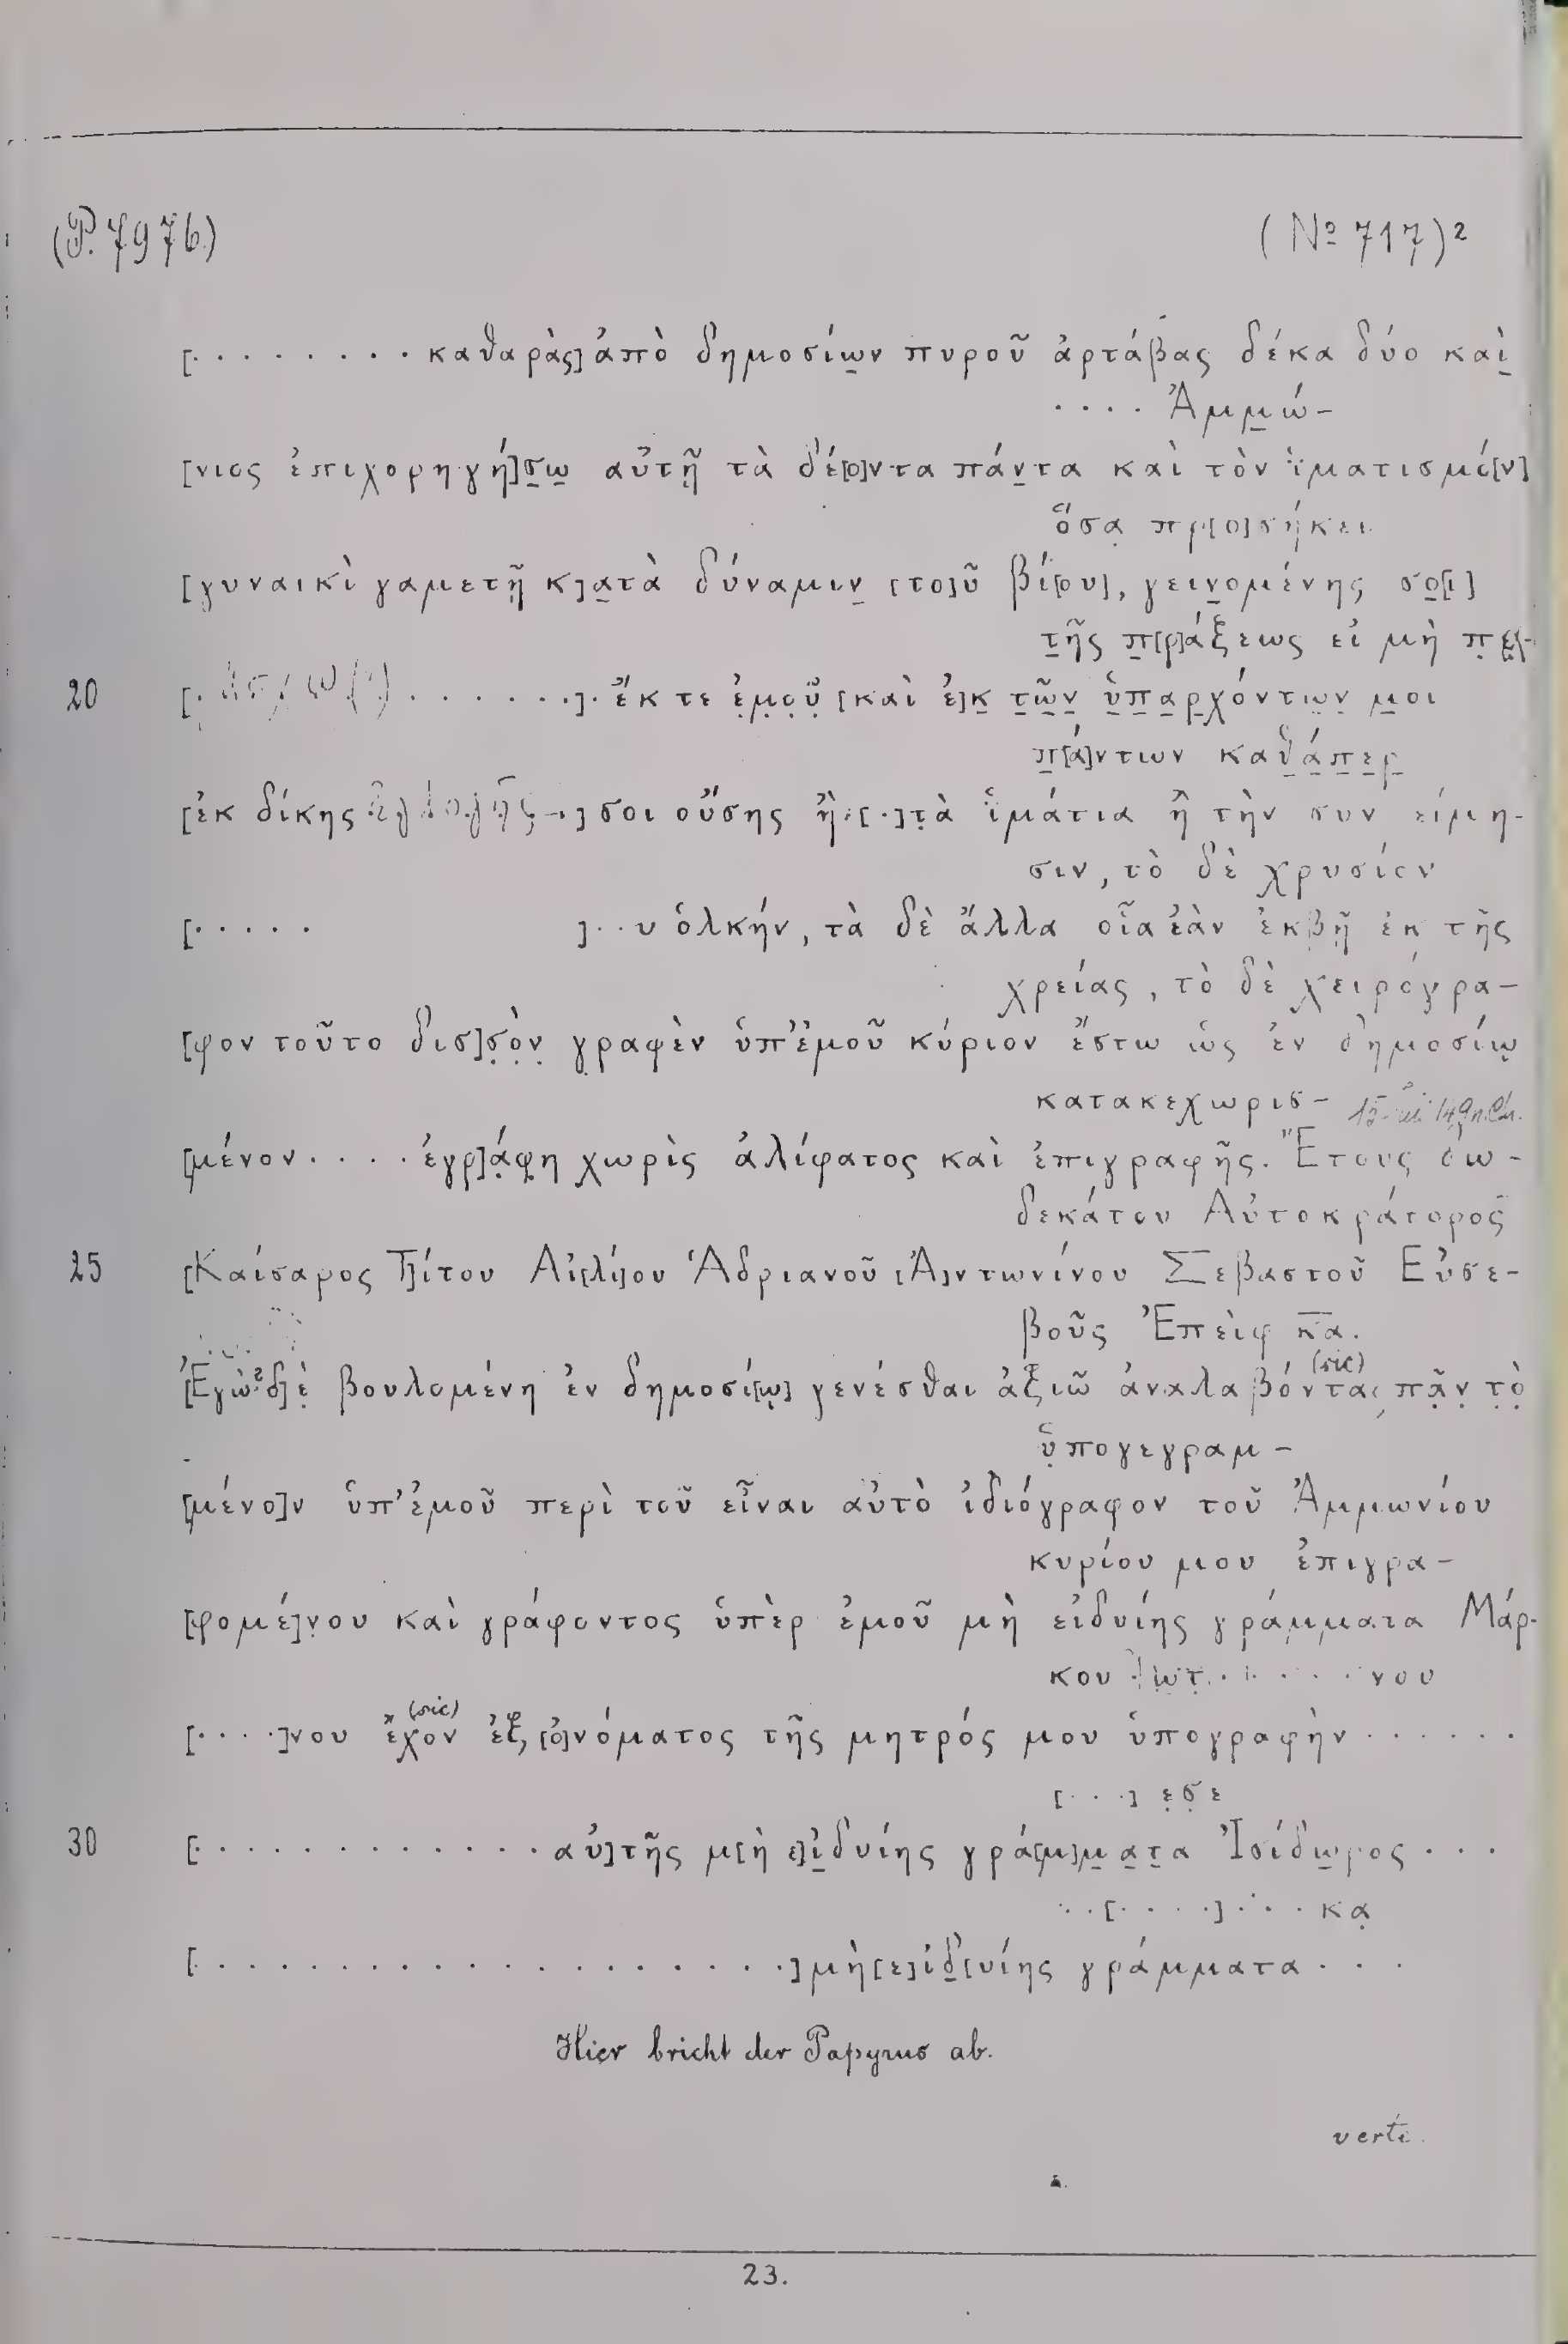 (P. 7976) (No 717)²
[. . . . . . . . καθαρὰς] ἀπὸ δημοσίων πυροῦ ἀρτάβας δέκα δύο καὶ
. . . . Ἀμμώ-
[νιος ἐπιχορηγή]σω αὐτῇ τὰ δέ[ο]ντα πάντα καὶ τὸν ἱματισμό[ν]
ὅσα πρ[ο]σήκει
[γυναικὶ γαμετῇ κ]ατὰ δύναμιν [το]ῦ βί[ου], γεινομένης σο[ι]
τῆς π[ρ]άξεως εἰ μὴ
20 [. . . . . . . .]. ἔκ τε ἐμοῦ [καὶ ἐ]κ τῶν ὑπαρχόντων μοι
π[ά]ντων καθάπερ
[ἐκ δίκης -.] σοι οὔσης ἢ .[.] τὰ ἱμάτια ἢ τὴν συντείμη-
σιν, τὸ δὲ χρυσίον
[. . . . . ]. . υ ὁλκήν, τὰ δὲ ἄλλα οἷα ἐὰν ἐκβῇ ἐκ τῆς
χρείας, τὸ δὲ χειρόγρα-
[φον τοῦτο δισ]σὸν γραφὲν ὑπ' ἐμοῦ κύριον ἔστω ὡς ἐν δημοσίῳ
κατακεχωρισ-
[μένον. . . . ἐγρ]άφη χωρὶς ἀλίφατος καὶ ἐπιγραφῆς. Ἔτους δω-
δεκάτου Αὐτοκράτορος
25 [Καίσαρος Τ]ίτου Αἰ[λί]ου Ἁδριανοῦ [Ἀ]ντωνίνου Σεβαστοῦ Εὐσε-
βοῦς Ἐπεὶφ κα.
[Ἐγὼ? δ]ὲ βουλομένη ἐν δημοσί[ῳ] γενέσθαι ἀξιῶ ἀναλαβόντας (sic) πᾶν τὸ
ὑπογεγραμ-
[μένο]ν ὑπ' ἐμοῦ περὶ τοῦ εἶναι αὐτὸ ἰδιόγραφον τοῦ Ἀμμωνίου
κυρίου μου ἐπιγρα-
[φομέ]νου καὶ γράφοντος ὑπὲρ ἐμοῦ μὴ εἰδυίης γράμματα Μάρ-
κου . . . . νου
[. . . .]νου ἔχον (sic) ἐξ [ὀ]νόματος τῆς μητρός μου ὑπογραφὴν . . . . . .
[. . .] εσε
30 [. . . . . . . . . . . . αὐ]τῆς μ[ὴ ε]ἰδυίης γρά[μ]ματα Ἰσίδωρος . . .
. . [. . . .] . . . κα
[. . . . . . . . . . . . . . . . . . .] μὴ [ε]ἰδ[υίης γράμματα . . .
Hier bricht der Papyrus ab.
verte.
23.